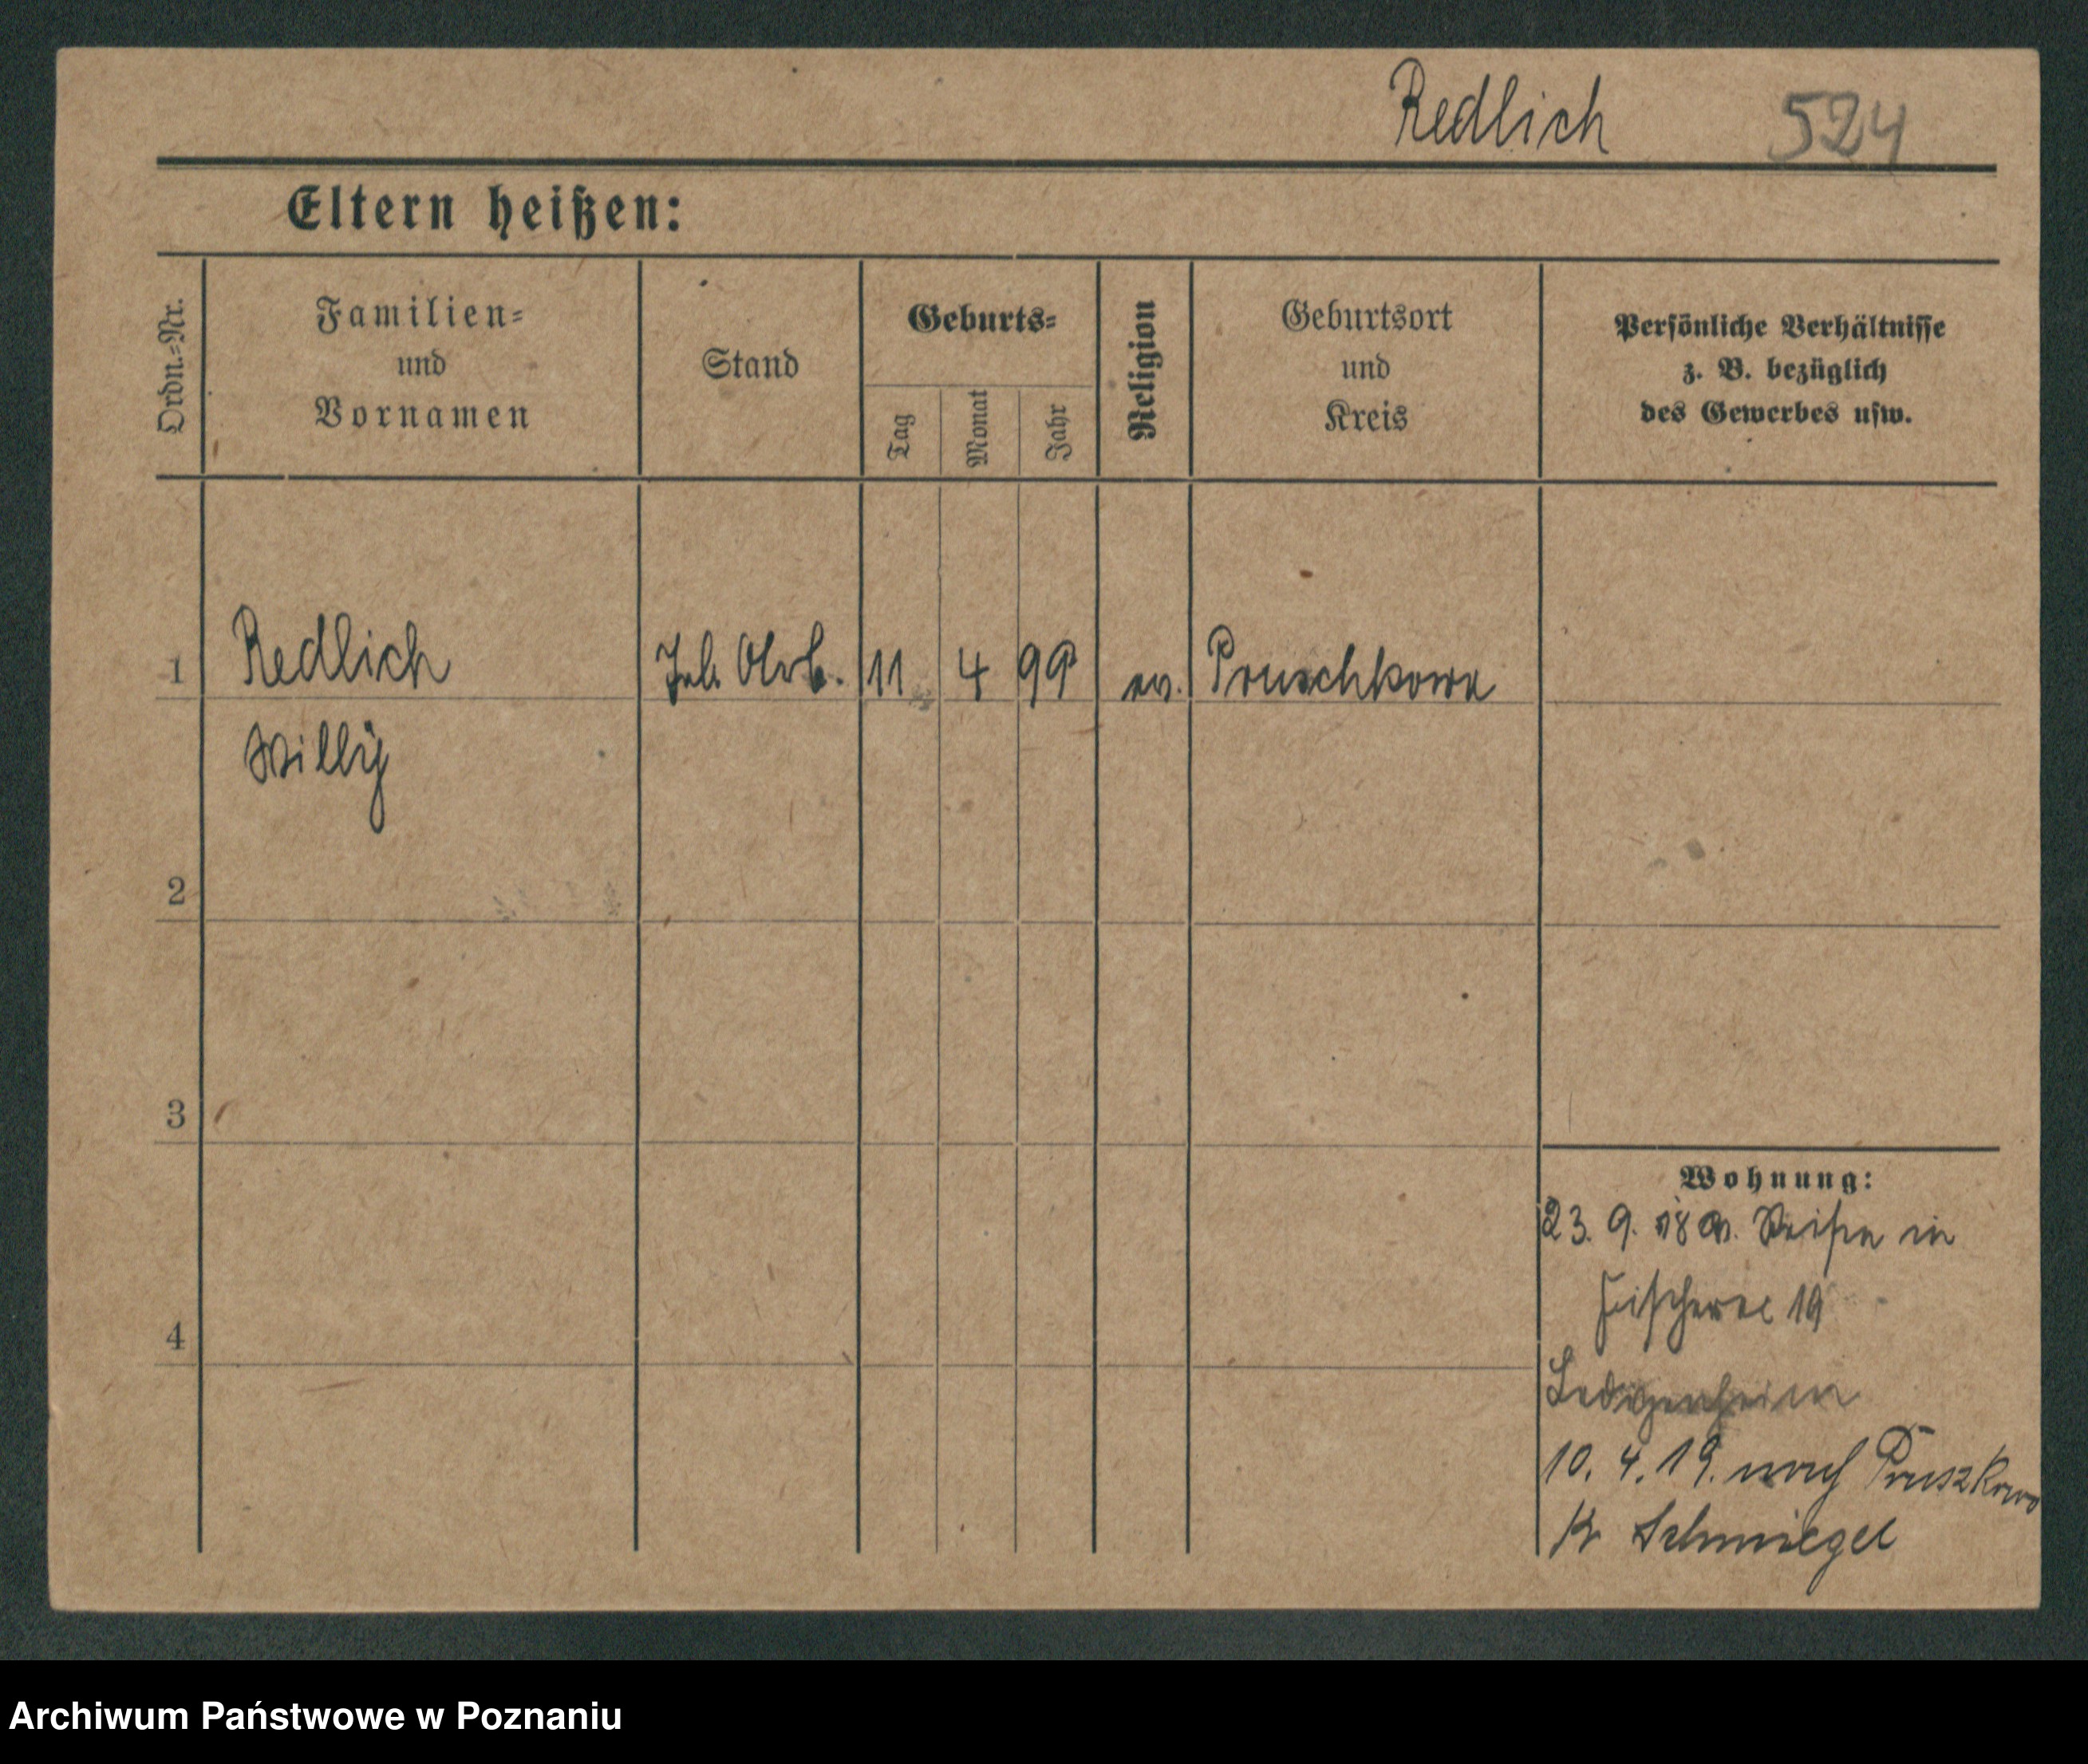 Redlich 524
Eltern heißen:
Ordn.-Nr.
Familien-
und
Vornamen
Stand
Geburts-
Tag
Monat
Jahr
Religion
Geburtsort
und
Kreis
Persönliche Verhältnisse
z. B. bezüglich
des Gewerbes usw.
1 Redlich 11 4 99 ev. Pruschkowo
Willy
2
3
4
Wohnung:
23. 9. 18 in
Fischerei 19
Ledigenheim
10. 4. 19. nach Pruszkowo
Kr Schmiegel
Archiwum Państwowe w Poznaniu